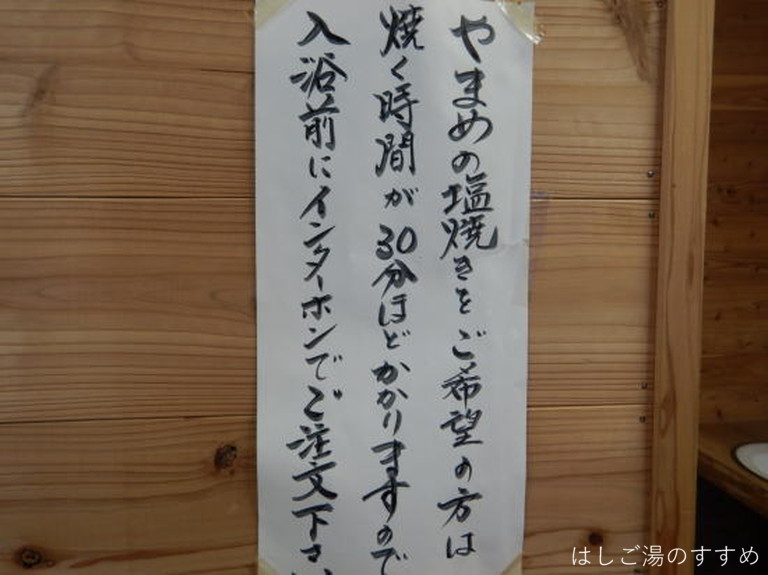 やまめの塩焼きをご希望の方は
焼く時間が30分ほどかかりますので
入浴前にインターホンでご注文下さい
はしご湯のすすめ